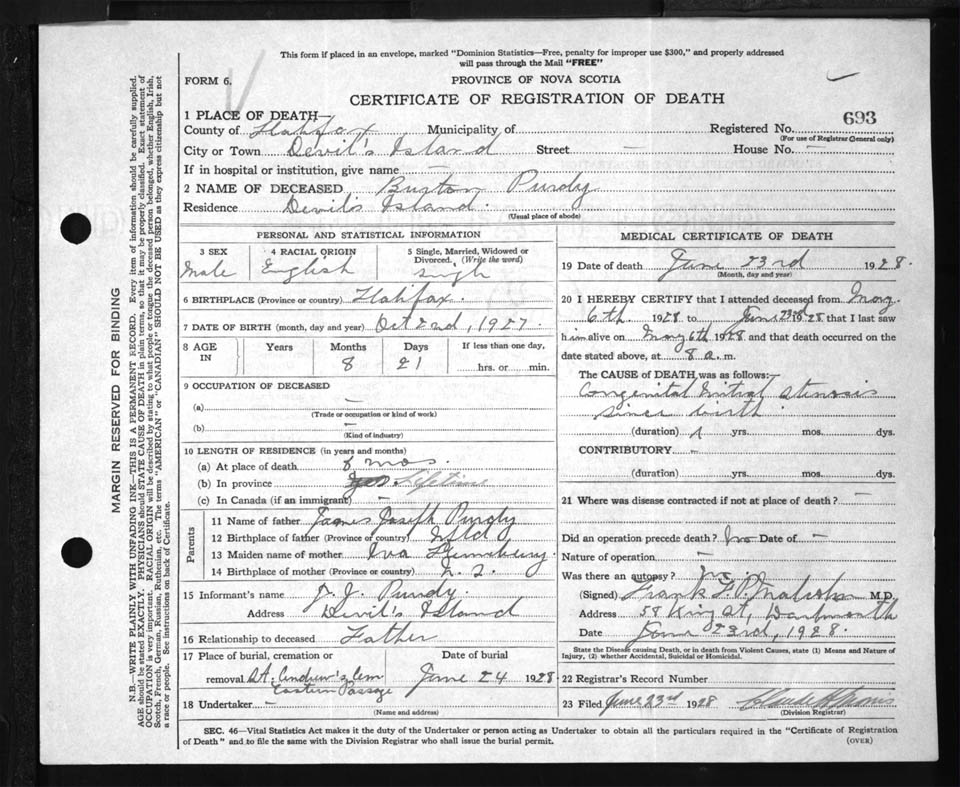 This form if placed in an envelope, marked "Dominion Statistics—Free, penalty for improper use $300," and properly addressed
will pass through the Mail "FREE"
FORM 6. PROVINCE OF NOVA SCOTIA
CERTIFICATE OF REGISTRATION OF DEATH
1 PLACE OF DEATH— 693
County of Halifax Municipality of Registered No.
(For use of Registrar General only)
City or Town Devil's Island Street — House No. —
If in hospital or institution, give name —
2 NAME OF DECEASED Burton Purdy
Residence Devil's Island.
(Usual place of abode)
PERSONAL AND STATISTICAL INFORMATION
3 SEX 4 RACIAL ORIGIN 5 Single, Married, Widowed or
Divorced. (Write the word)
Male English single
6 BIRTHPLACE (Province or country) Halifax.
7 DATE OF BIRTH (month, day and year) Oct 2nd, 1927.
8 AGE IN Years Months Days If less than one day,
8 21 hrs. or min.
9 OCCUPATION OF DECEASED
(a) —
(Trade or occupation or kind of work)
(b) —
(Kind of industry)
10 LENGTH OF RESIDENCE (in years and months)
(a) At place of death 8 mos.
(b) In province Lifetime
(c) In Canada (if an immigrant) —
Parents
11 Name of father James Joseph Purdy
12 Birthplace of father (Province or country) Nfld
13 Maiden name of mother Iva
14 Birthplace of mother (Province or country)
15 Informant's name J. J. Purdy.
Address Devil's Island
16 Relationship to deceased Father
17 Place of burial, cremation or Date of burial
removal St. Andrew's Cem June 24 1928
Eastern Passage
18 Undertaker —
(Name and address)
MEDICAL CERTIFICATE OF DEATH
19 Date of death June 23rd 1928.
(Month, day and year)
20 I HEREBY CERTIFY that I attended deceased from May
6th 1928 to June 23rd 1928 that I last saw
him alive on May 6th 1928 and that death occurred on the
date stated above, at 8 a. m.
The CAUSE OF DEATH was as follows:—
Congenital mitral stenosis
since birth
(duration) yrs. mos. dys.
CONTRIBUTORY —
(duration) yrs. mos. dys.
21 Where was disease contracted if not at place of death? —
Did an operation precede death? no Date of —
Nature of operation —
Was there an autopsy? no
(Signed) Frank M.D.
Address 58 King St, Dartmouth
Date June 23rd, 1928.
State the Disease causing Death, or in death from Violent Causes, state (1) Means and Nature of
Injury, (2) whether Accidental, Suicidal or Homicidal.
22 Registrar's Record Number
23 Filed June 23rd 1928
(Division Registrar)
SEC. 46—Vital Statistics Act makes it the duty of the Undertaker or person acting as Undertaker to obtain all the particulars required in the "Certificate of Registration
of Death" and to file the same with the Division Registrar who shall issue the burial permit. (OVER)
MARGIN RESERVED FOR BINDING
N.B.—WRITE PLAINLY WITH UNFADING INK—THIS IS A PERMANENT RECORD. Every item of information should be carefully supplied.
AGE should be stated EXACTLY. PHYSICIANS should STATE CAUSE OF DEATH in plain terms, so that it may be properly classified. Exact statement of
OCCUPATION is very important. RACIAL ORIGIN will be described by stating to what people or tongue the deceased person belonged, whether English, Irish,
Scotch, French, German, Russian, Ruthenian, etc. The terms "AMERICAN" or "CANADIAN" SHOULD NOT BE USED as they express citizenship but not
a race or people. See instructions on back of Certificate.